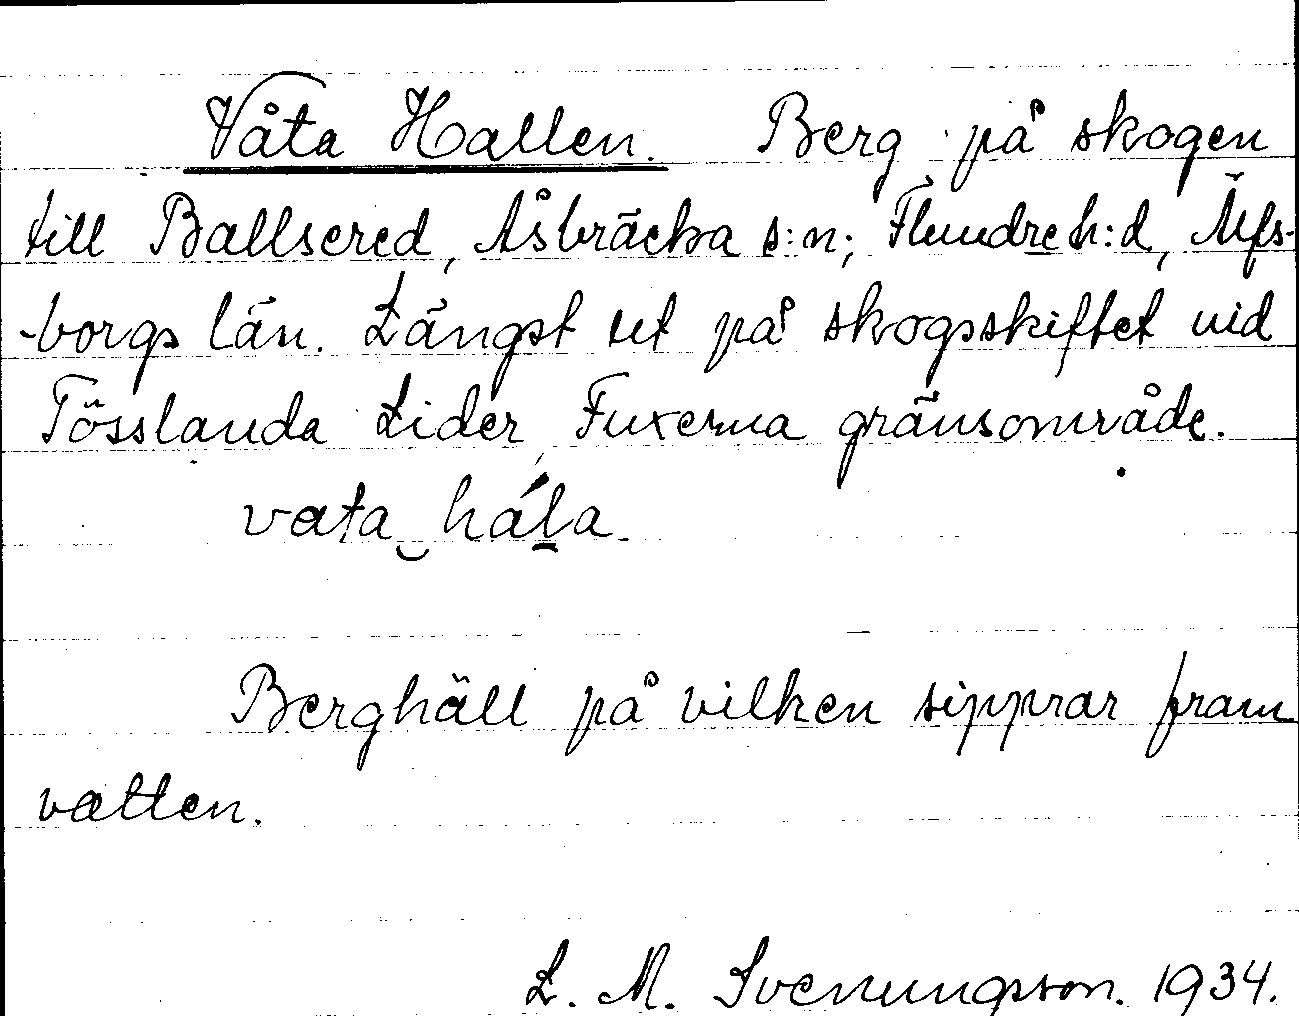 Våta Hallen. Berg på skogen
till Ballsered, Åsbräcka s:n; Flundre h:d, Älfs-
-borgs län. Längst ut på skogsskiftet vid
Tösslanda Lider, Fuxerna gränsområde.
vata hála.
Berghäll på vilken sipprar fram
vatten.
L. M. Svenungson. 1934.